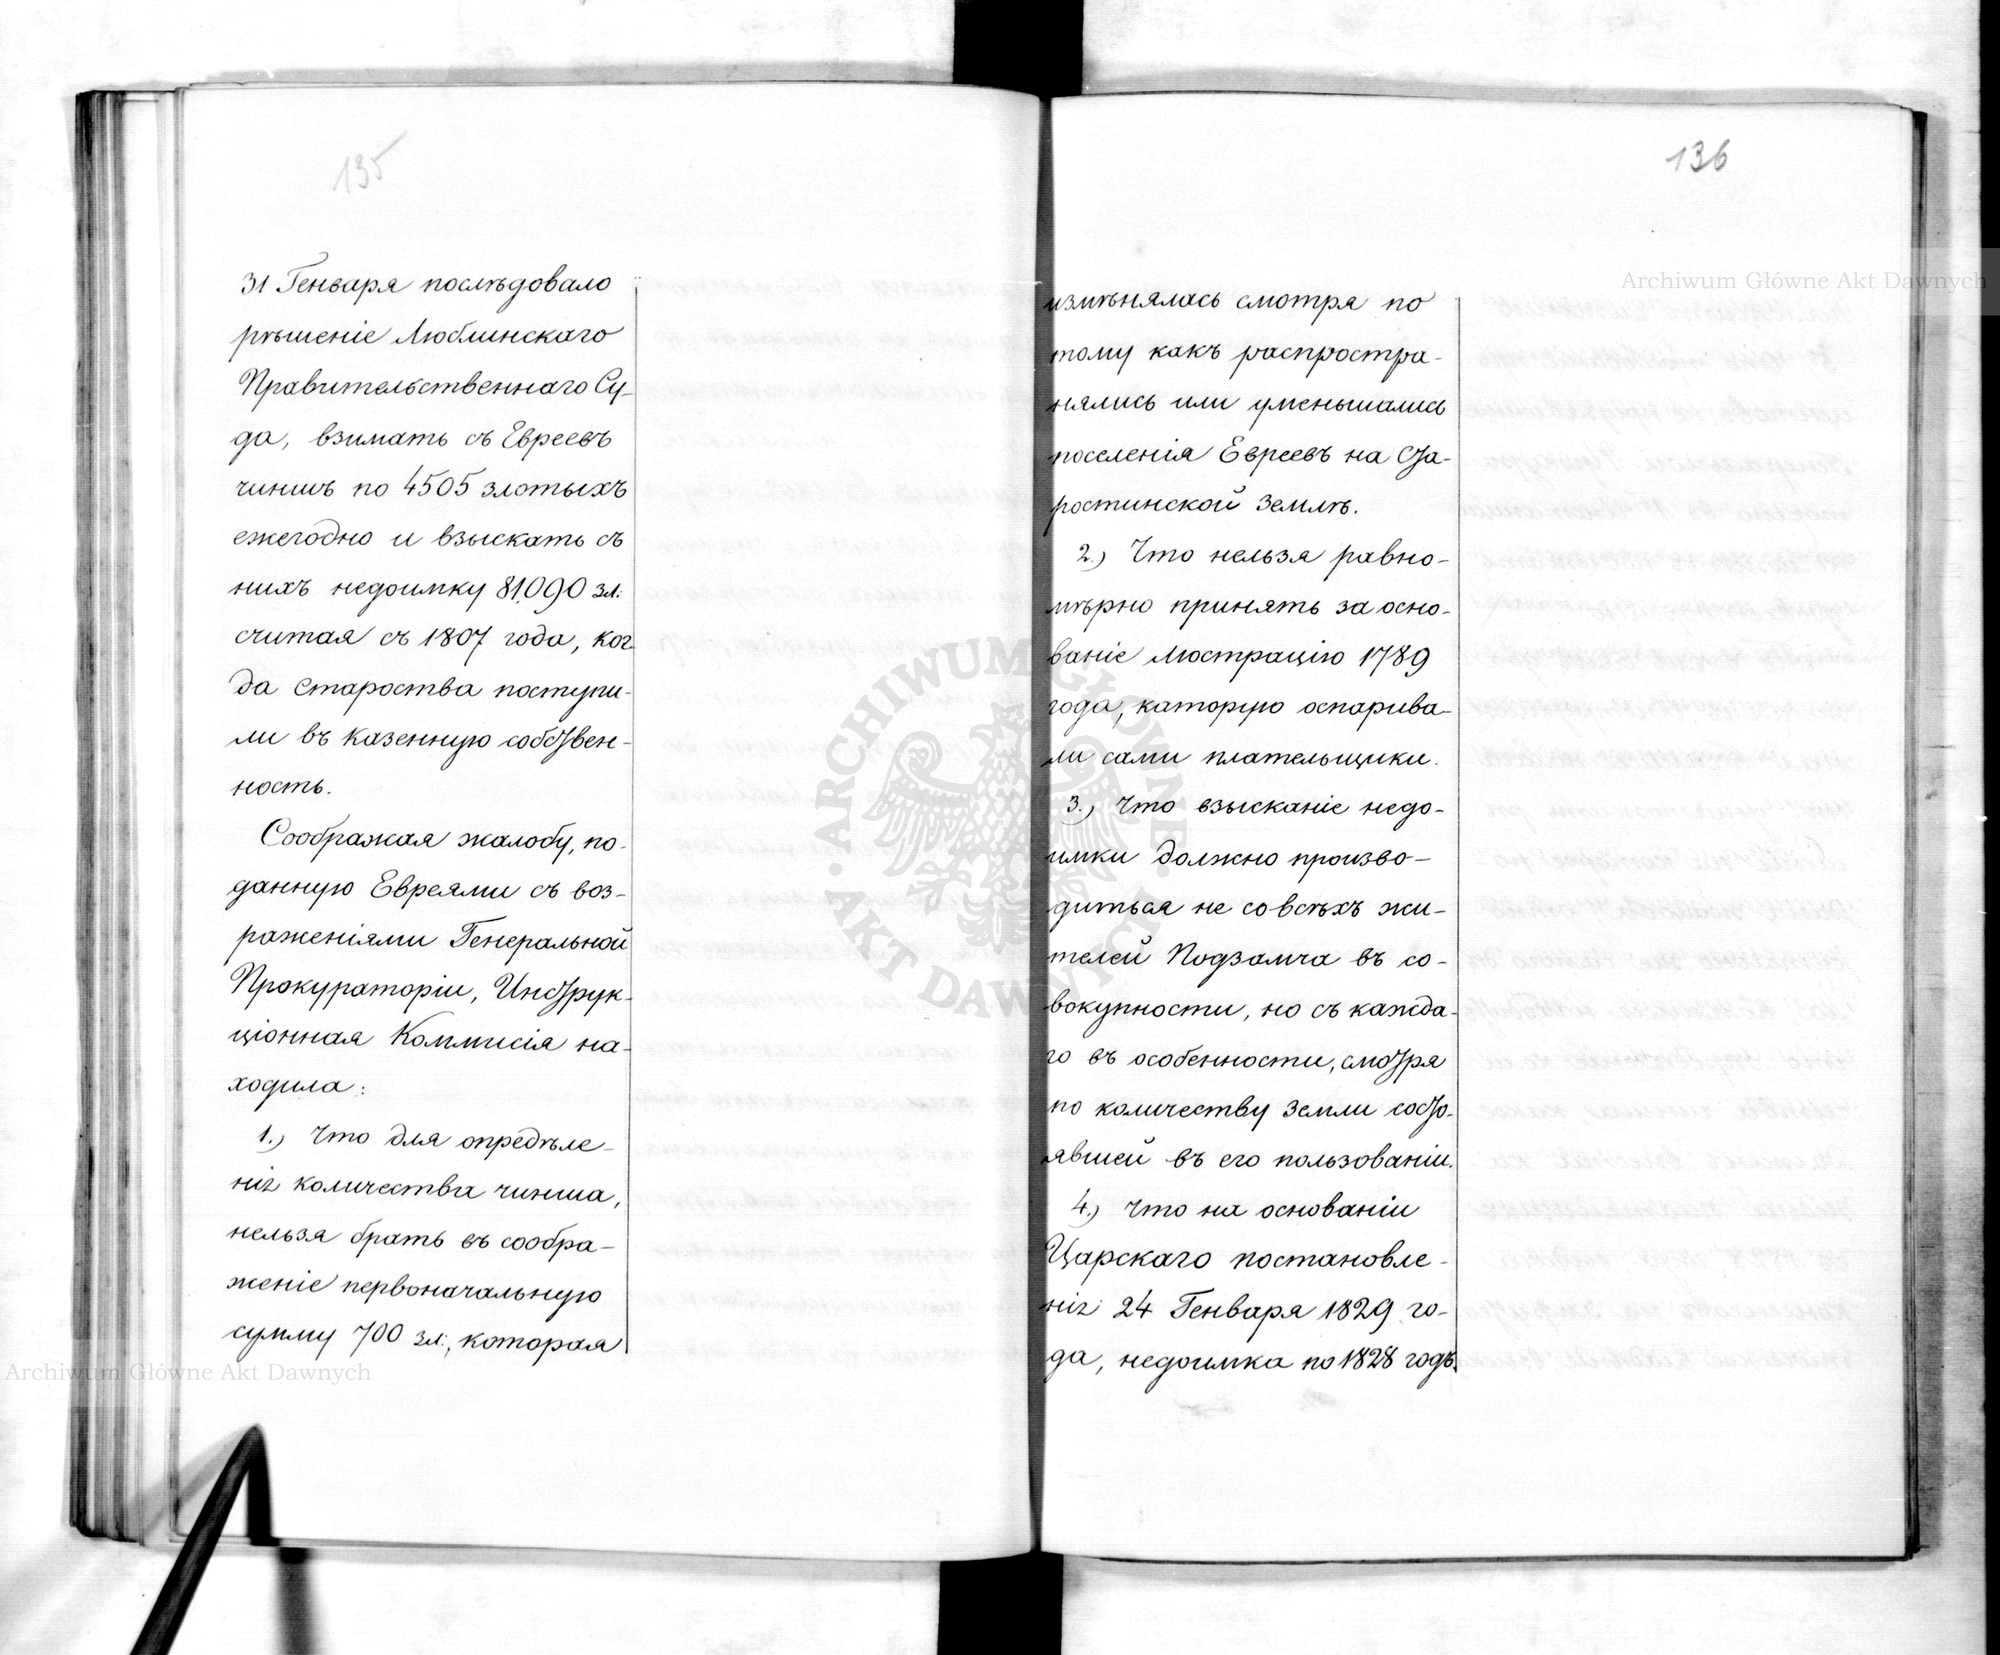 135
31 Генваря послѣдовало
рѣшеніе Люблинскаго
Правительственнаго Су-
да, взимать съ Евреевъ
чиншъ по 4505 злотыхъ
ежегодно и взыскать съ
нихъ недоимку 81,090 зл:
считая съ 1807 года, ког-
да староства поступи-
ли въ казенную собствен-
ность.
Соображая жалобу, по-
данную Евреями съ воз-
раженіями Генеральной
Прокураторіи, Инструк-
ціонная Коммисія на-
ходила:
1.) Что для опредѣле-
нія количества чинша,
нельзя брать въ сообра-
женіе первоначальную
сумму 700 зл:, которая
136
измѣнялась смотря по
тому какъ распростра-
нялись или уменьшались
поселенія Евреевъ на Ста-
ростинской землѣ.
2.) Что нельзя равно-
мѣрно принять за осно-
ваніе люстрацію 1789
года, каторую оспарива-
ли сами плательщики.
3.) Что взысканіе недо-
имки должно произво-
диться не со всѣхъ жи-
телей Подзамча въ со-
вокупности, но съ каждa-
го въ особенности, смотря
по количеству земли состо-
явшей въ его пользованіи.
4.) Что на основаніи
Царскаго постановле-
нія 24 Генваря 1829 го-
да, недоимка по 1828 годъ
Archiwum Główne Akt Dawnych
ARCHIWUM GŁÓWNE AKT DAWNYCH
Archiwum Główne Akt Dawnych